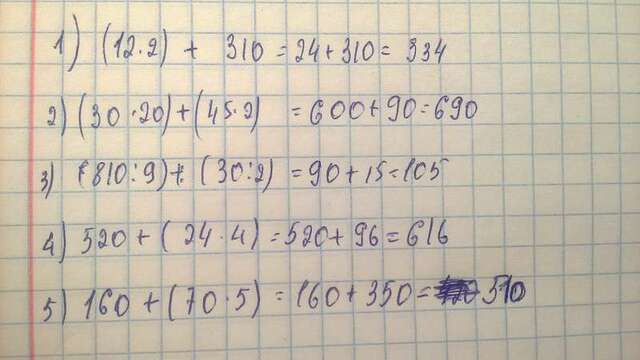 1) (12·2) + 310 = 24+310 = 334
2) (30·20)+(45·2) = 600+90=690
3) (810:9)+ (30:2) = 90+15=105
4) 520+( 24·4)=520+96=616
5) 160 +(70·5) = 160+350= 510